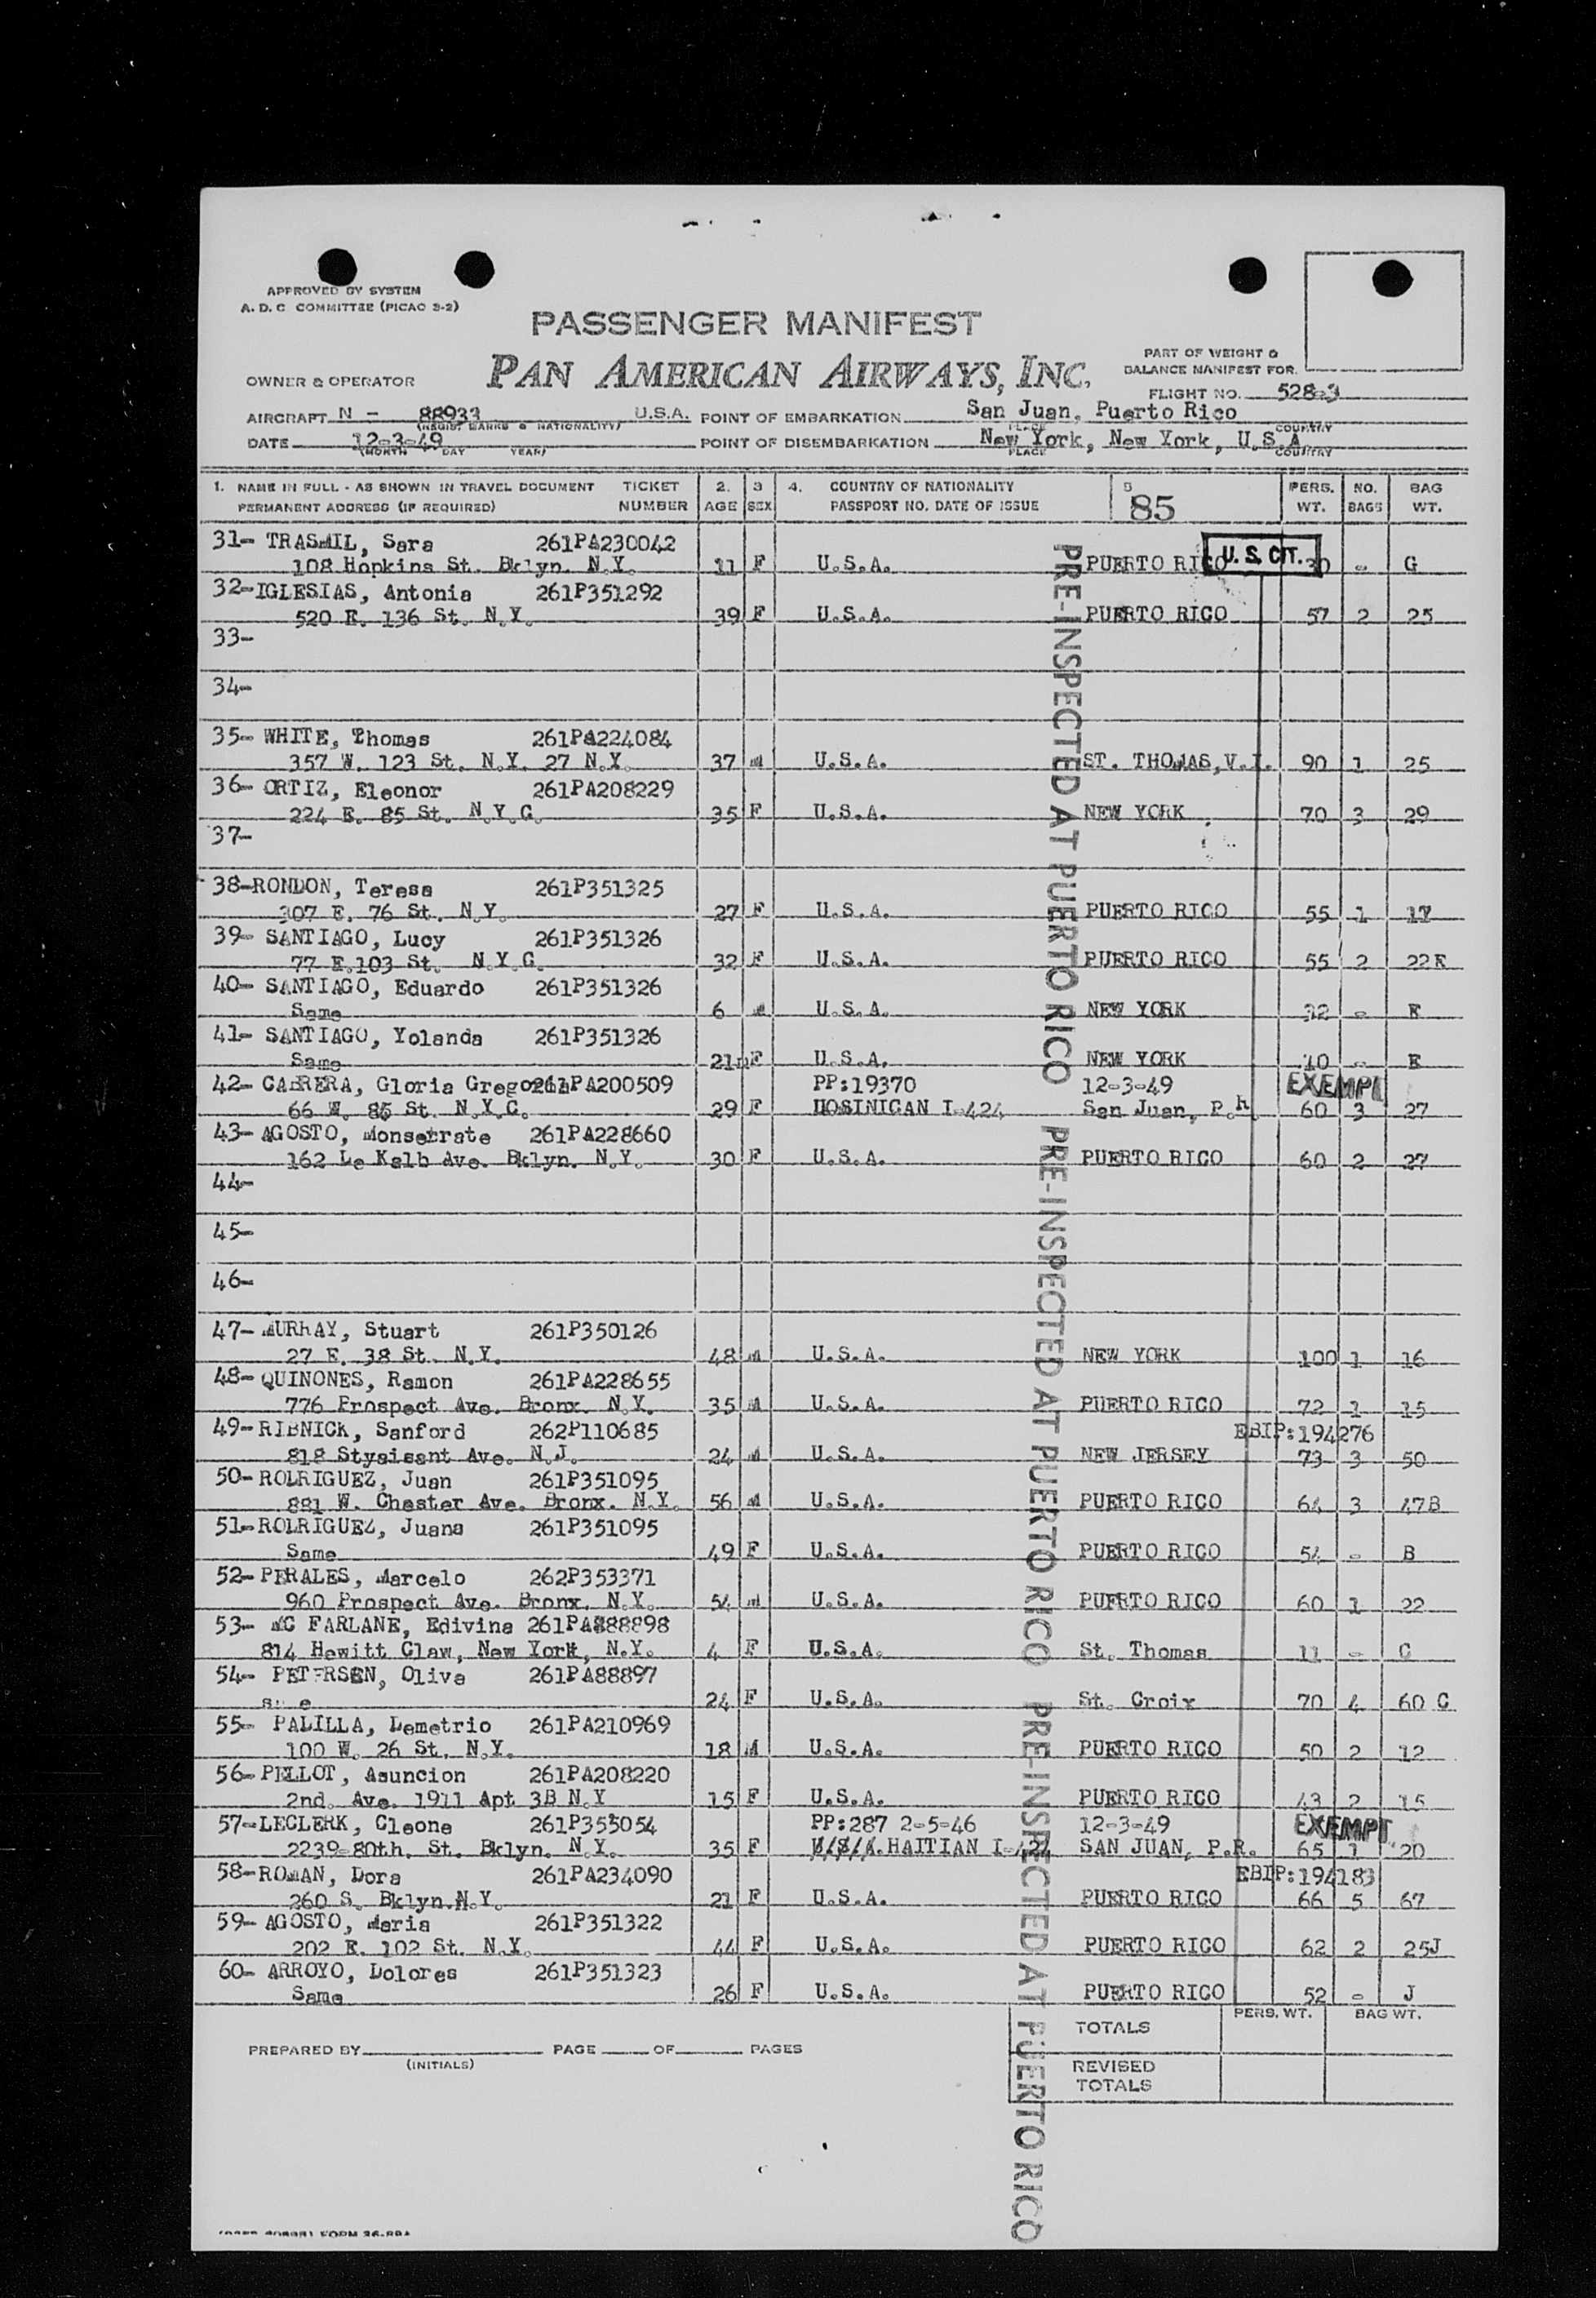 APPROVED BY SYSTEM
A. D. C COMMITTEE (PICAO 3-2)
PASSENGER MANIFEST
PAN AMERICAN AIRWAYS, INC.
PART OF WEIGHT &
BALANCE MANIFEST FOR
OWNER & OPERATOR
FLIGHT NO. 528-3
AIRCRAFT N - 88933 U.S.A. POINT OF EMBARKATION San Juan, Puerto Rico
(REGIST MARKS & NATIONALITY) PLACE COUNTRY
DATE 12-3-49 POINT OF DISEMBARKATION New York, New York, U.S.A.
(MONTH DAY YEAR) PLACE COUNTRY
1. NAME IN FULL - AS SHOWN IN TRAVEL DOCUMENT TICKET 2. 3 4. COUNTRY OF NATIONALITY 5 PERS. NO. BAG
PERMANENT ADDRESS (IF REQUIRED) NUMBER AGE SEX PASSPORT NO. DATE OF ISSUE 85 WT. BAGS WT.
31- TRASMIL, Sara 261PA230042
108 Hopkins St. Bklyn. N.Y. 11 F U.S.A. PUERTO RICO U. S. CIT. 30 - G
32-IGLESIAS, Antonia 261P351292
520 E. 136 St. N.Y. 39 F U.S.A. PUERTO RICO 57 2 25
33-
34-
35- WHITE, Thomas 261PA224084
357 W. 123 St. N.Y. 27 N.Y. 37 M U.S.A. ST. THOMAS,V.I. 90 1 25
36- ORTIZ, Eleonor 261PA208229
224 E. 85 St. N.Y.C. 35 F U.S.A. NEW YORK 70 3 29
37-
38-RONDON, Teresa 261P351325
307 E. 76 St. N.Y. 27 F U.S.A. PUERTO RICO 55 1 17
39- SANTIAGO, Lucy 261P351326
77 E.103 St. N.Y.C. 32 F U.S.A. PUERTO RICO 55 2 22E
40- SANTIAGO, Eduardo 261P351326
Same 6 M U.S.A. NEW YORK 32 - E
41- SANTIAGO, Yolanda 261P351326
Same 21m F U.S.A. NEW YORK 10 - E
42- CABRERA, Gloria 261PA200509 PP:19370 12-3-49 EXEMPT
66 W. 85 St. N.Y.C. 29 F DOMINICAN I-424 San Juan, P.R. 60 3 27
43- AGOSTO, Monserrate 261PA228660
162 De Kalb Ave. Bklyn. N.Y. 30 F U.S.A. PUERTO RICO 60 2 27
44-
45-
46-
47- MURRAY, Stuart 261P350126
27 E. 38 St. N.Y. 48 M U.S.A. NEW YORK 100 1 16
48- QUINONES, Ramon 261PA228655
776 Prospect Ave. Bronx. N.Y. 35 M U.S.A. PUERTO RICO 72 1 15
49- RIBNICK, Sanford 262P110685 EBIP:194276
818 Stysisant Ave. N.J. 24 M U.S.A. NEW JERSEY 73 3 50
50- RODRIGUEZ, Juan 261P351095
881 W. Chester Ave. Bronx. N.Y. 56 M U.S.A. PUERTO RICO 64 3 47B
51-RODRIGUEZ, Juana 261P351095
Same 49 F U.S.A. PUERTO RICO 54 - B
52- PERALES, Marcelo 262P353371
960 Prospect Ave. Bronx. N.Y. 54 M U.S.A. PUERTO RICO 60 1 22
53- MC FARLANE, Edivina 261PA888898
814 Hewitt Claw, New York, N.Y. 4 F U.S.A. St. Thomas 11 - C
54- PETERSEN, Oliva 261PA88897
same 24 F U.S.A. St. Croix 70 4 60 C
55- PADILLA, Demetrio 261PA210969
100 W. 26 St. N.Y. 18 M U.S.A. PUERTO RICO 50 2 12
56- PELLOT, Asuncion 261PA208220
2nd. Ave. 1911 Apt 3B N.Y 15 F U.S.A. PUERTO RICO 43 2 15
57-LECLERK, Cleone 261P355054 PP:287 2-5-46 12-3-49 EXEMPT
2239-80th. St. Bklyn. N.Y. 35 F U.S.A. HAITIAN I-424 SAN JUAN, P.R. 65 1 20
58- ROMAN, Dora 261PA234090 EBIP:194183
260 S. Bklyn.N.Y. 21 F U.S.A. PUERTO RICO 66 5 67
59- AGOSTO, Maria 261P351322
202 E. 102 St. N.Y. 44 F U.S.A. PUERTO RICO 62 2 25J
60- ARROYO, Dolores 261P351323
Same 26 F U.S.A. PUERTO RICO 52 - J
PRE-INSPECTED AT PUERTO RICO PRE-INSPECTED AT PUERTO RICO PRE-INSPECTED AT PUERTO RICO
PERS. WT. BAG WT.
TOTALS
PREPARED BY PAGE OF PAGES
(INITIALS)
REVISED
TOTALS
FORM